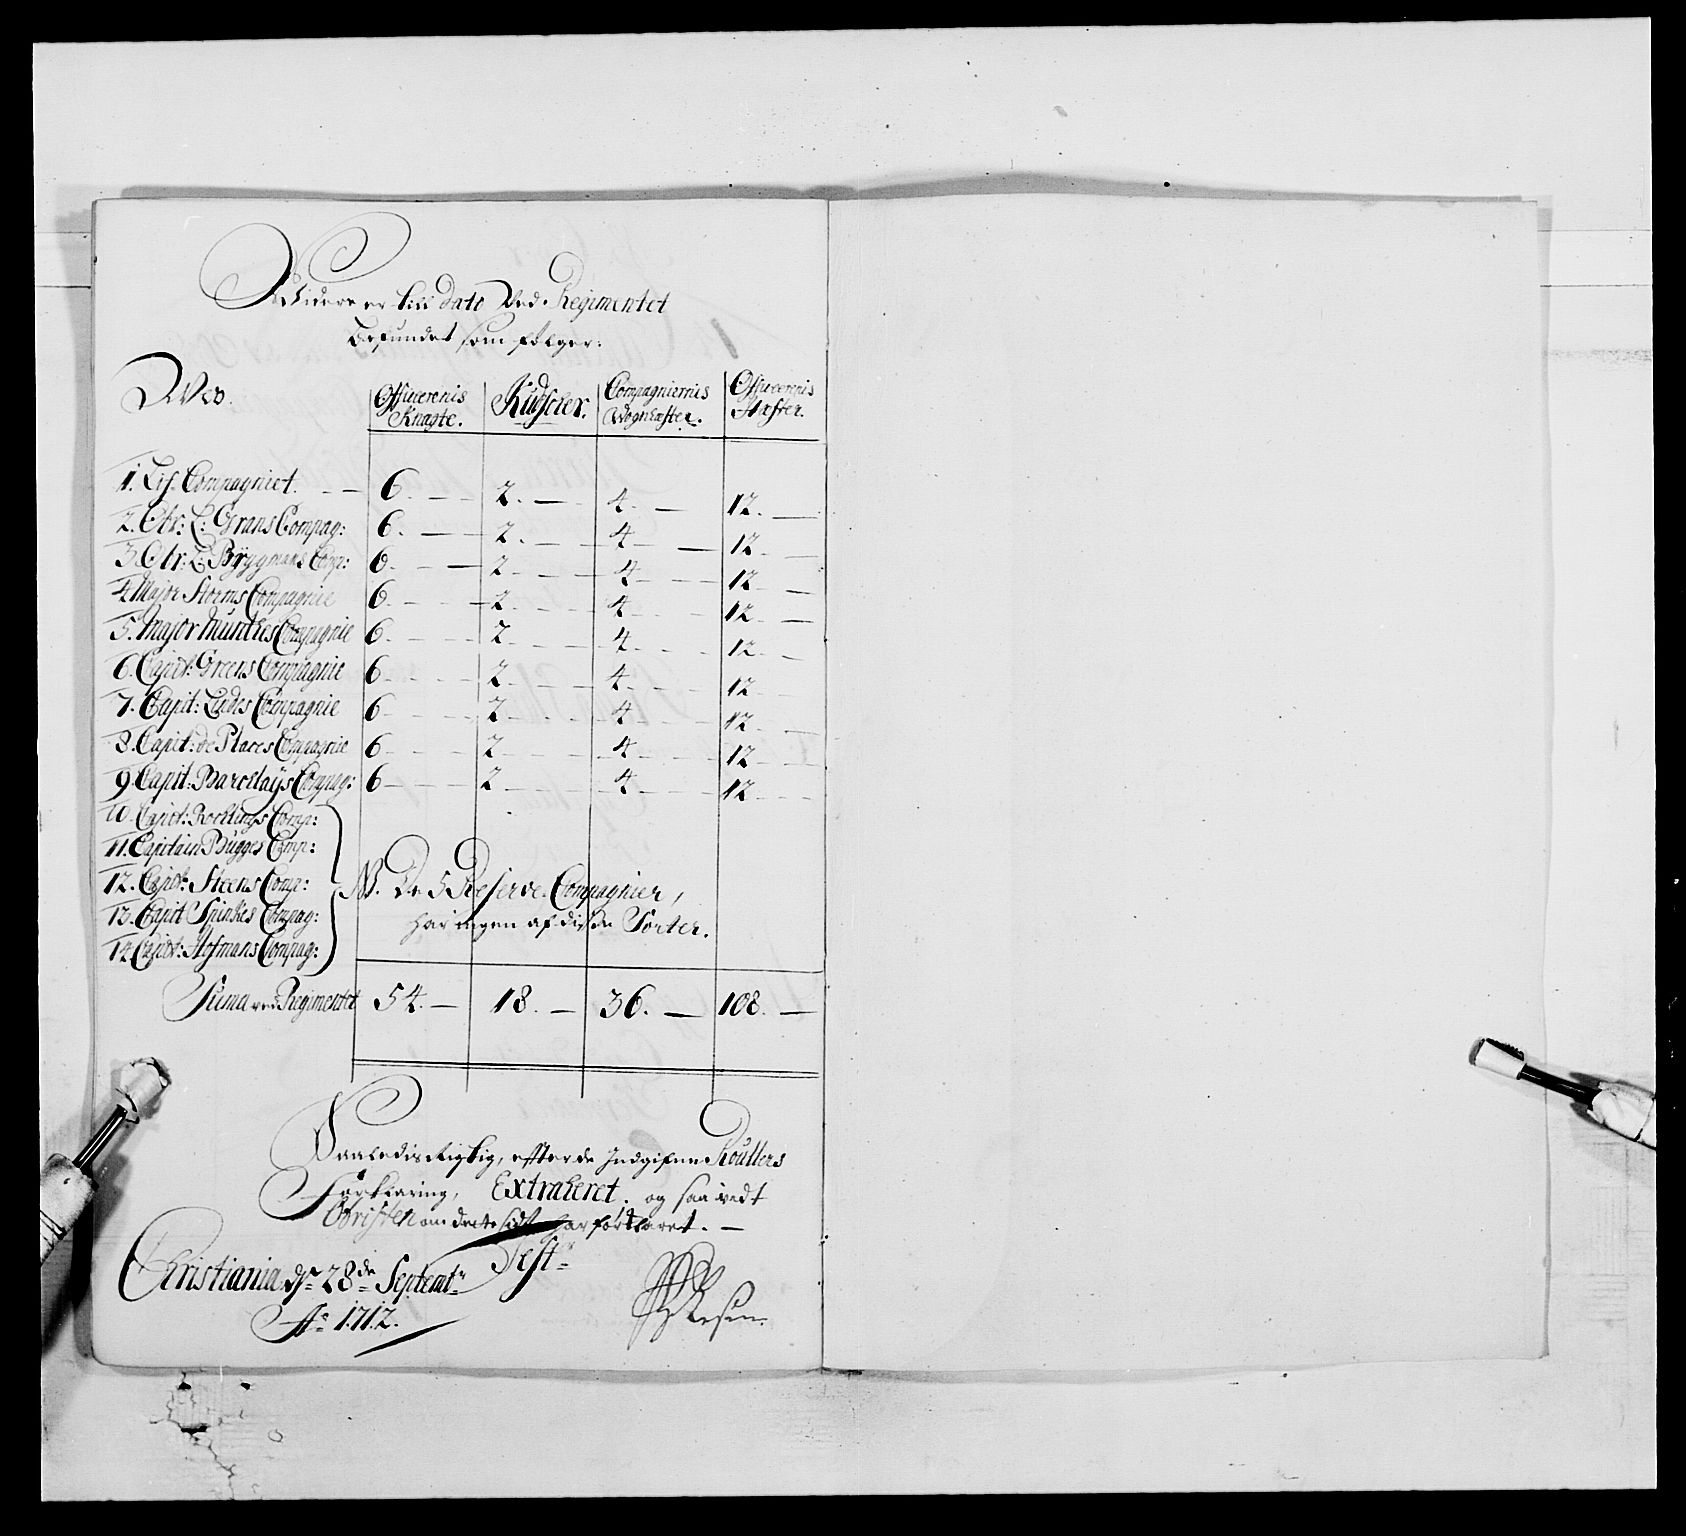 Widere er till dato Ved Regimentet
befundet som følger:
Wed. Officerenis Knægte. Kudscher. Compagniernis Wognhæster. Officerenis Hæster.
1. Lif Compagniet. 6. 2. 4. 12.
2. Obr: L: Grans Compag: 6. 2. 4. 12.
3. Obr: L: Brygmans Comp: 6. 2. 4. 12.
4. Major Storms Compagnie 6. 2. 4. 12.
5. Major Munthes Compagnie 6. 2. 4. 12.
6. Capit: Greens Compagnie 6. 2. 4. 12.
7. Capit: Ludes Compagnie 6. 2. 4. 12.
8. Capit: de Places Compagnie 6. 2. 4. 12.
9. Capit: Barclays Compag: 6. 2. 4. 12.
10. Capit: Rochlings Comp:
11. Capitain Bugges Comp:
12. Capit: Steens Comp: NB. De 5 Reserve Compagnier,
13. Capit Spinkes Compag: har ingen af disse Sorter.
14. Capit: Hofmans Compag:
Suma ved Regimentet 54. 18. 36. 108.
Saaledis Rigtig, efter de Indgifne Roullers
Forklaring, Extraheret, og saa vidt
Obristen om dette sidst har forklaret.
Test
Christiania d. 28de Septembr
Ao 1712.